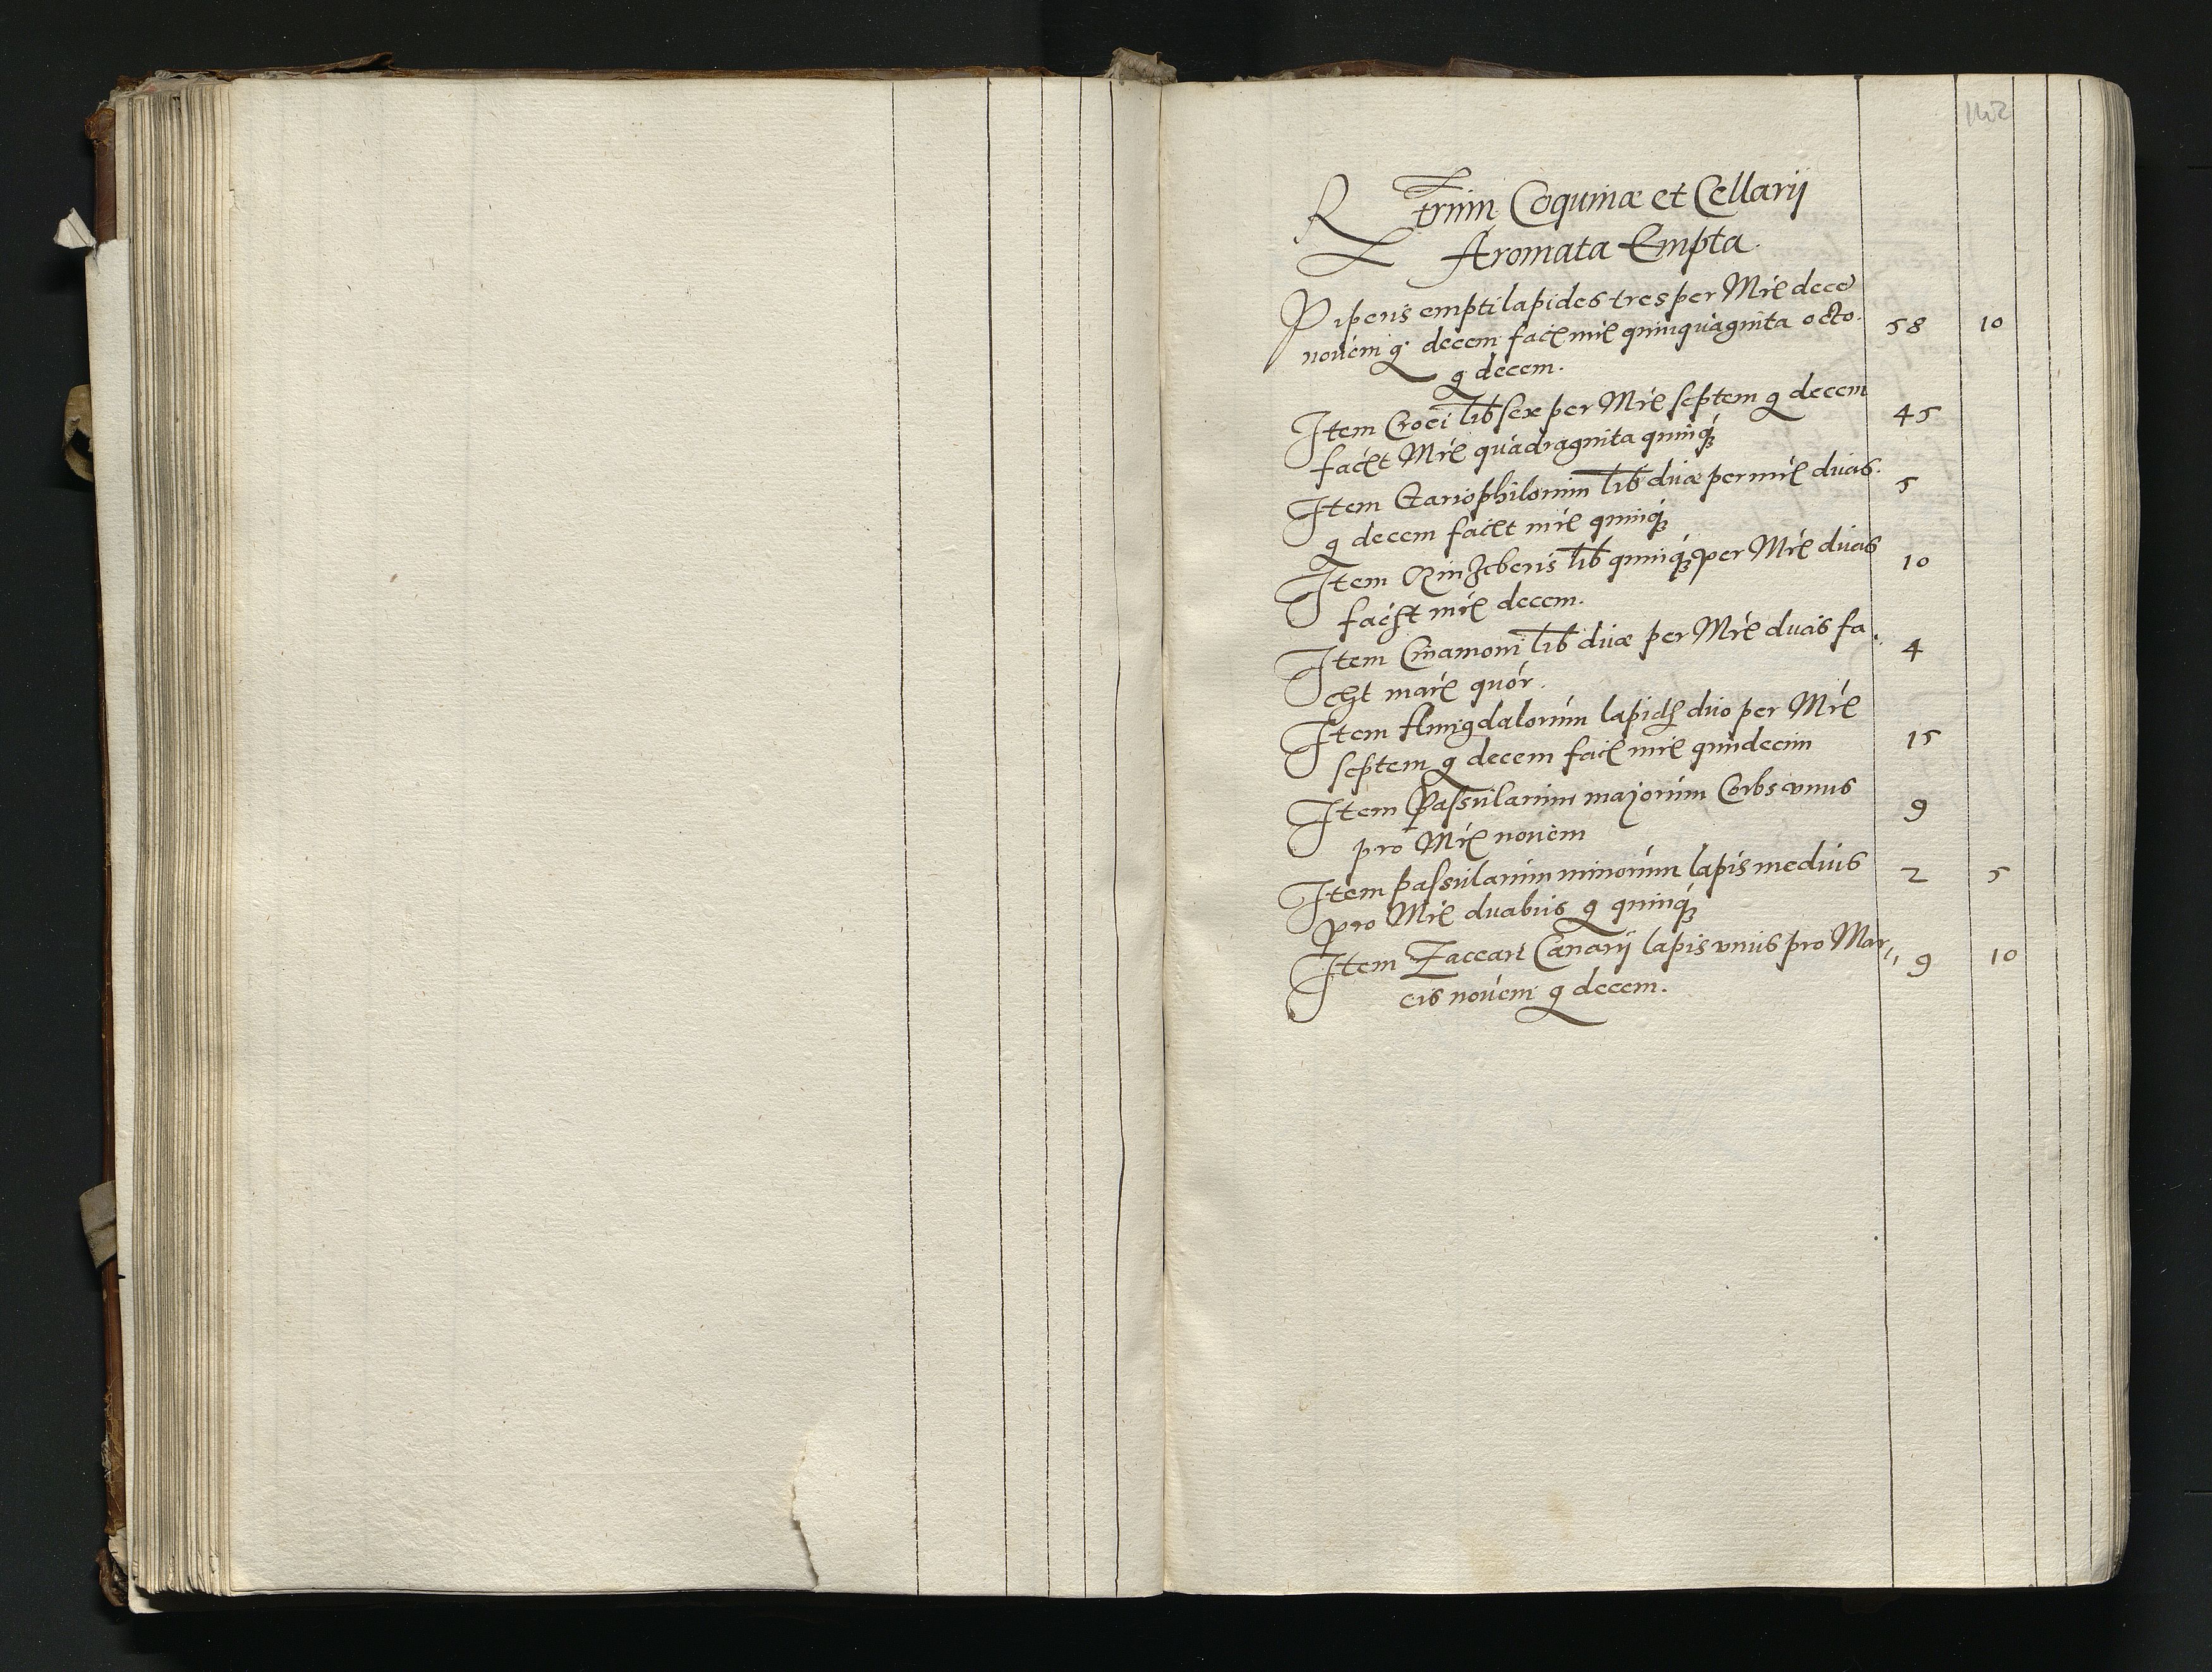 142
Rerum Coquinæ et Cellarij
Aromata Empta.
Piperis empti lapides tres per Mrc dece
novem g decem fac mrc quinquaginta octo. 58 10
g decem.
Item Croci lib sex per Mrc septem g decem 45
faciet Mrc quadraginta quinq
Item Gariophilorum lib duæ per mrc duas. 5
g decem faciet mrc quinq
Item Zinziberis lib quinq per Mrc duas 10
faciet mrc decem.
Item Cinamomi lib duæ per Mrc duas fa 4
ciet marc quor.
Item Amigdalorum lapid duo per Mrc
septem g decem fac mrc quindecim 15
Item Passularum majorum Corbs vnus 9
pro Mrc novem
Item passularum minorum lapis medius 2 5
pro Mrc duabus g quinq
Item Zaccari Canarij lapis vnus pro Mar 9 10
cis novem g decem.